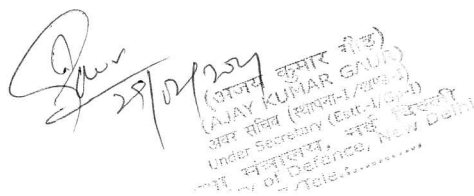 29/02/2024
(अजय कुमार गौड़)
(AJAY KUMAR GAUR)
अवर सचिव (स्थापना-I/ग्रुप-I)
Under Secretary (Estt-I/Gp-I)
मंत्रालय, नई दिल्ली
of Defence, New Delhi
/Tele.:............